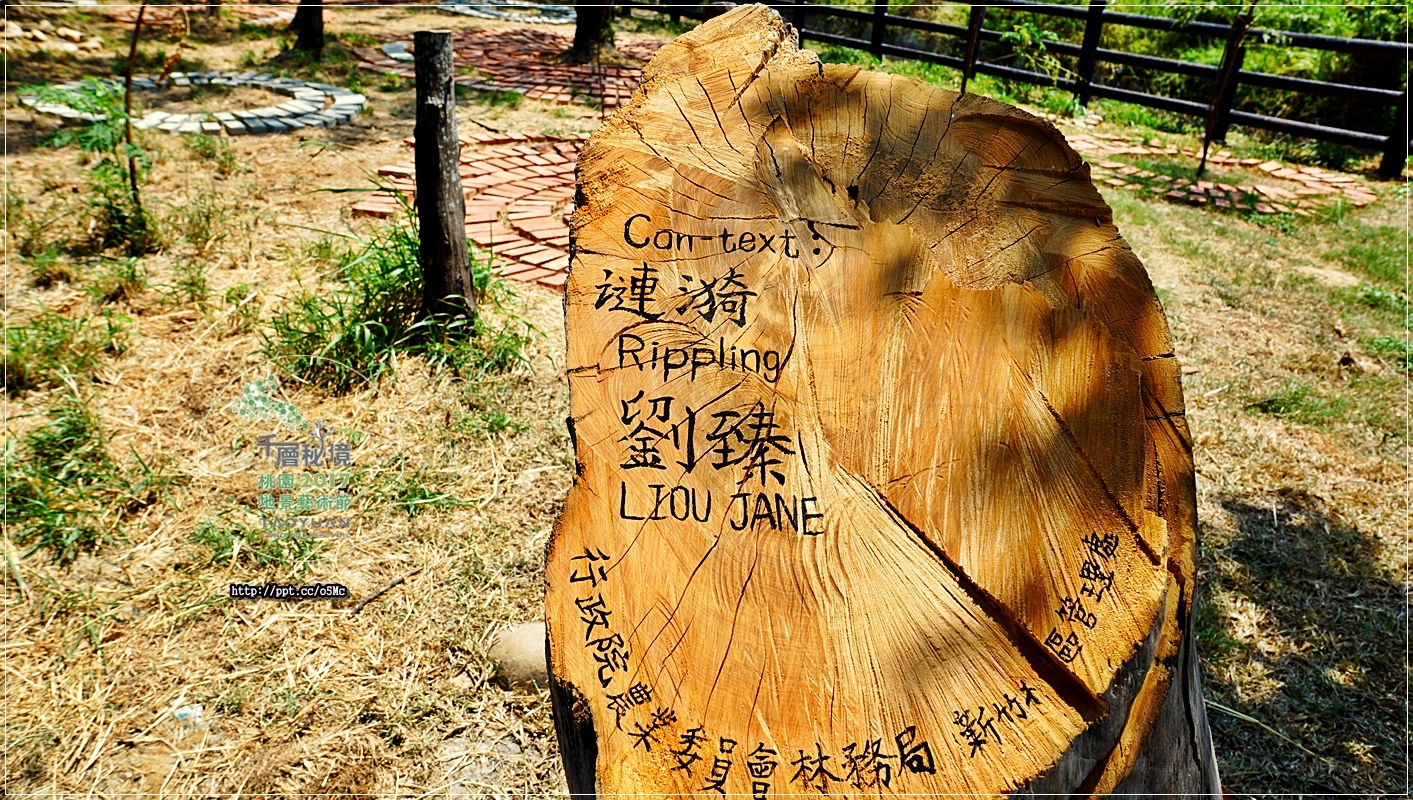 Can-text:
謰漪
Rippling
劉臻
LIOU JANE
行政院農業委員會林務局 新竹 區管理處
千層秘境
桃園2017
地景藝術節
TAOYUAN
http://ppt.cc/o5Mc